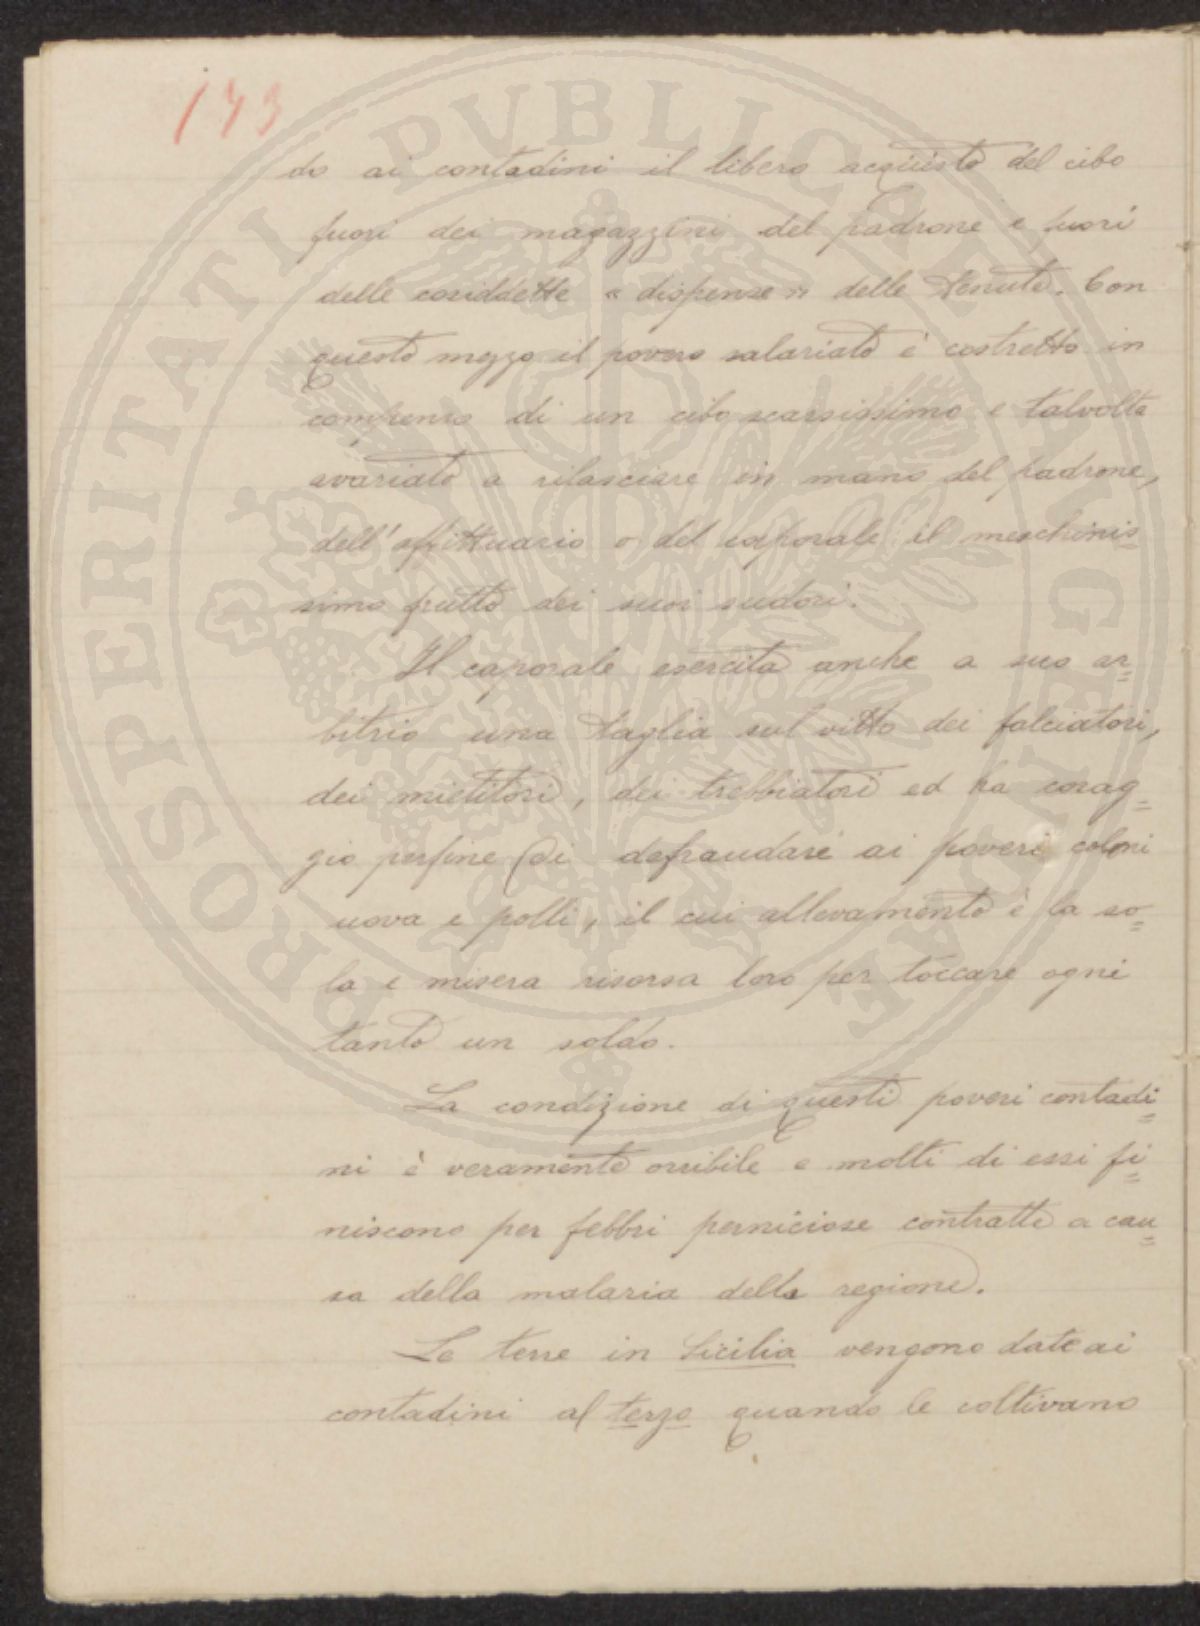 143
do ai contadini il libero acquisto del cibo
fuori dei magazzini del padrone e fuori
delle cosiddette « dispense » delle tenute. Con
questo mezzo il povero salariato è costretto in
compenso di un cibo scarsissimo e talvolta
avariato a rilasciare in mano del padrone,
dell'affittuario o del caporale il meschinis=
simo frutto dei suoi sudori.
Il caporale esercita anche a suo ar=
bitrio una taglia sul vitto dei falciatori,
dei mietitori, dei trebbiatori ed ha corag=
gio perfine di defraudare ai poveri coloni
uova e polli, il cui allevamento è la so=
la e misera risorsa loro per toccare ogni
tanto un soldo.
La condizione di questi poveri contadi=
ni è veramente orribile e molti di essi fi=
niscono per febbri perniciose contratte a cau=
sa della malaria della regione.
Le terre in Sicilia vengono date ai
contadini al terzo quando le coltivano
PROSPERITATI PVBLICAE AVGENDAE